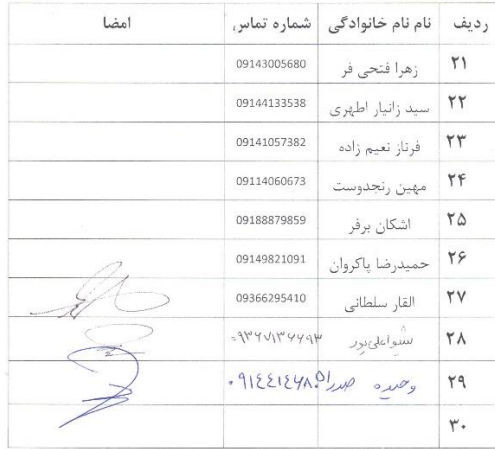 ردیف نام نام خانوادگی شماره تماس امضا
۲۱ زهرا فتحی فر 09143005680
۲۲ سید زانیار اطهری 09144133538
۲۳ فرناز نعیم زاده 09141057382
۲۴ مهین رنجدوست 09114060673
۲۵ اشکان برفر 09188879859
۲۶ حمیدرضا پاکروان 09149821091
۲۷ القار سلطانی 09366295410
۲۸ شیوا علی‌پور
۲۹ وحیده
۳۰